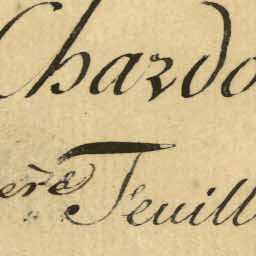 Chardo
ère Feuill